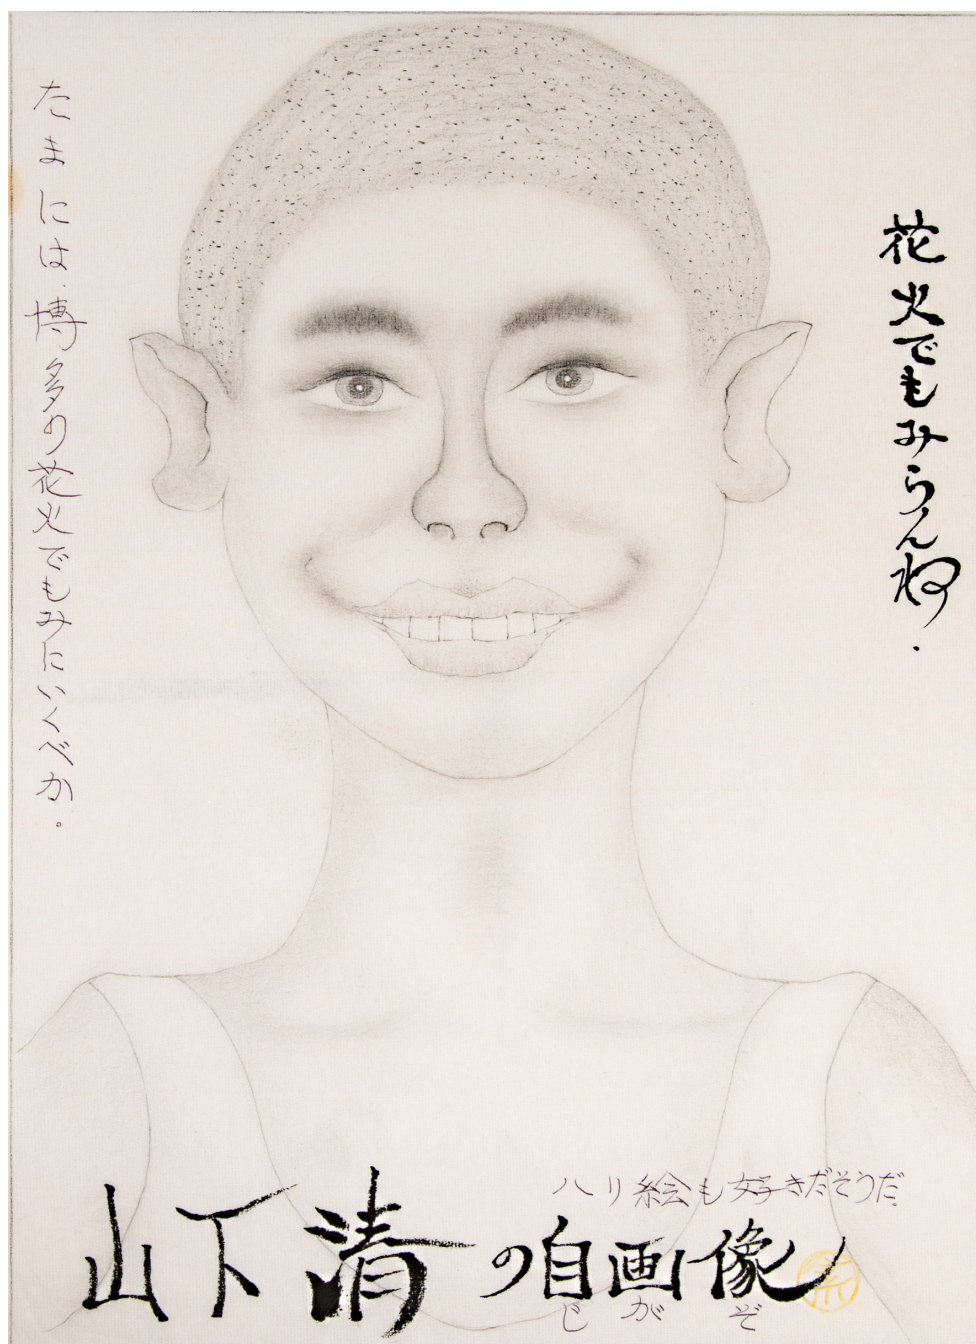 花火でもみらんね.
たまには、博多の花火でもみにいくべか。
ハリ絵も好きだそうだ
山下清の自画像
じがぞ